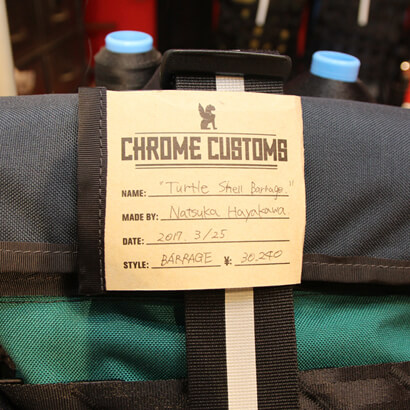 CHROME CUSTOMS
NAME: "Turtle Shell Barrage."
MADE BY: Natsuka Hayakawa.
DATE: 2017. 3/25
STYLE: BARRAGE ¥: 30,240